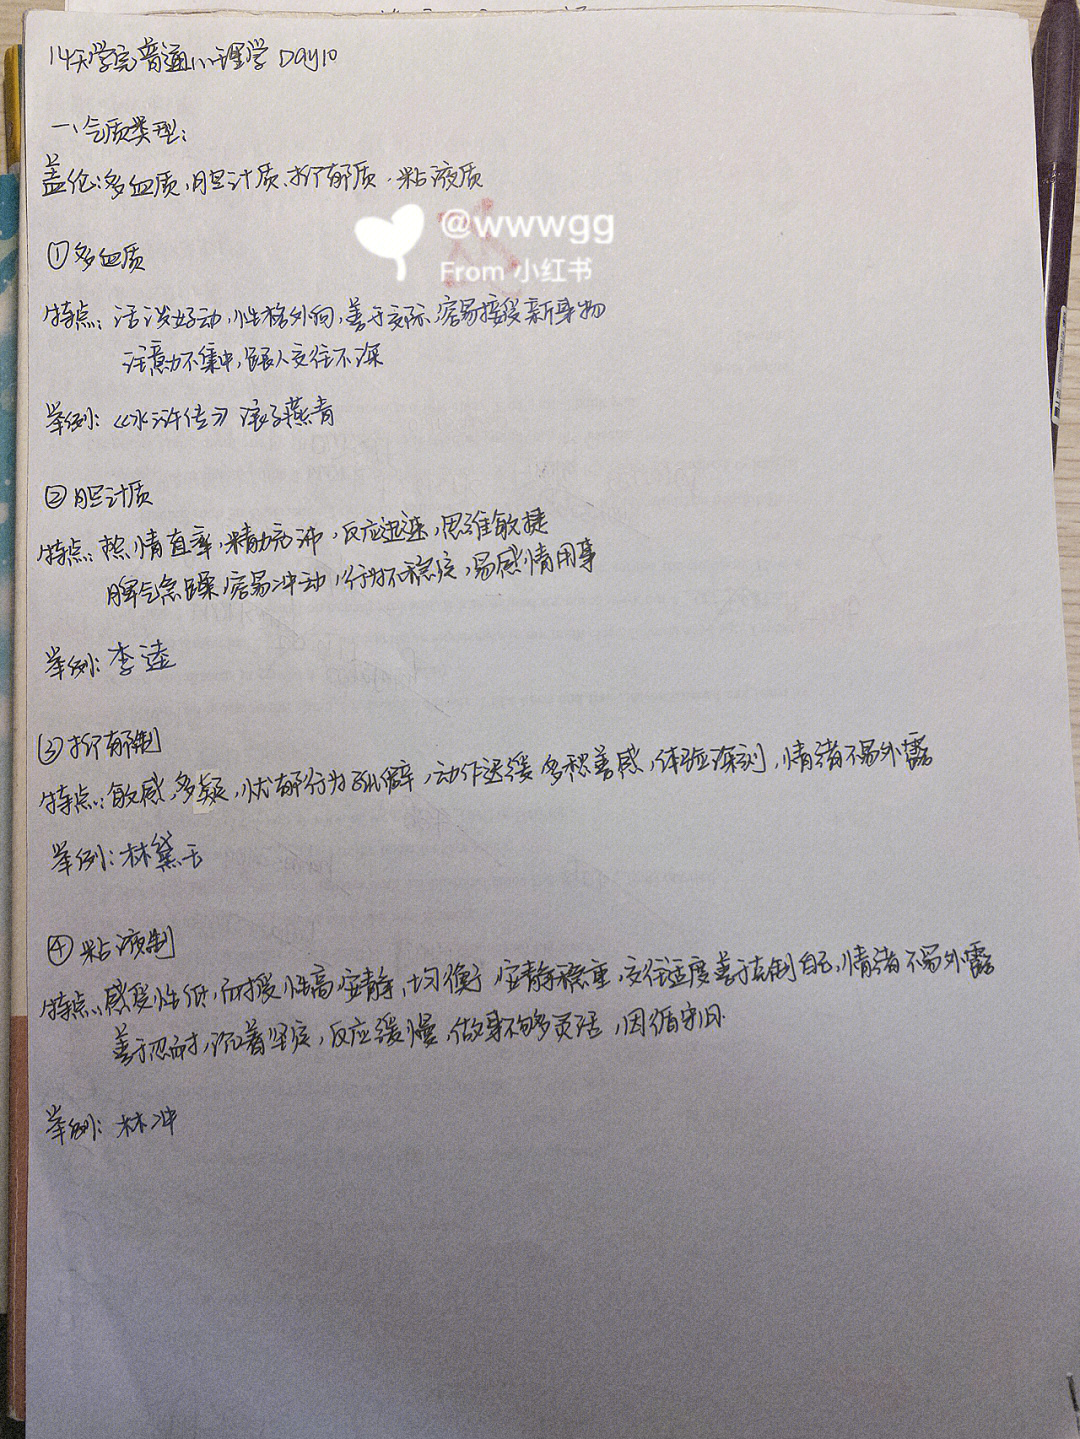 14天学完普通心理学 Day10
一、气质类型：
盖伦：多血质、胆汁质、抑郁质、粘液质
@wwwgg
From 小红书
①多血质
特点：活泼好动，性格外向，善于交际，容易接受新事物
注意力不集中，跟人交往不深
举例：《水浒传》浪子燕青
②胆汁质
特点：热情直率，精力充沛，反应迅速，思维敏捷
脾气急躁，容易冲动，行为不稳定，易感情用事
举例：李逵
③抑郁制
特点：敏感，多疑，忧郁行为孤僻，动作迟缓 多愁善感，体验深刻，情绪不易外露
举例：林黛玉
④粘液制
特点：感受性低，耐受性高，安静，均衡，安静稳重，交往适度善于克制自己，情绪不易外露
善于忍耐，沉着坚定，反应缓慢，做事不够灵活，因循守旧
举例：林冲